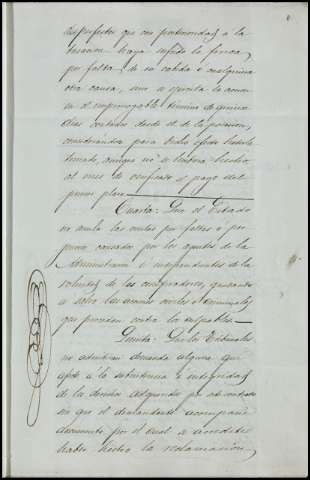 desperfectos que con posterioridad á la
tasacion haya sufrido la finca,
por falta de su cabida ó cualquiera
otra causa, sino se ejercita la accion
en el improrogable término de quince
dias contados desde el de la posesion,
considerándose para dicho efecto
tomada, aunque no se hubiera hecho,
al mes de verificado el pago del
primer plazo.
Cuarta: Que el Estado
no anula las ventas por faltas ó per-
juicios causados por los agentes de la
Administracion é independientes de la
voluntad de los compradores, quedando
á salvo las acciones civiles ó criminales
que procedan contra los culpables.
Quinta: Que los Tribunales
no admitirán demanda alguna que
afecte á la subsistencia é integridad
de los derechos adquiridos por este contrato
sin que el demandante acompañe
documento por el cual se acredite
haber hecho la reclamacion,